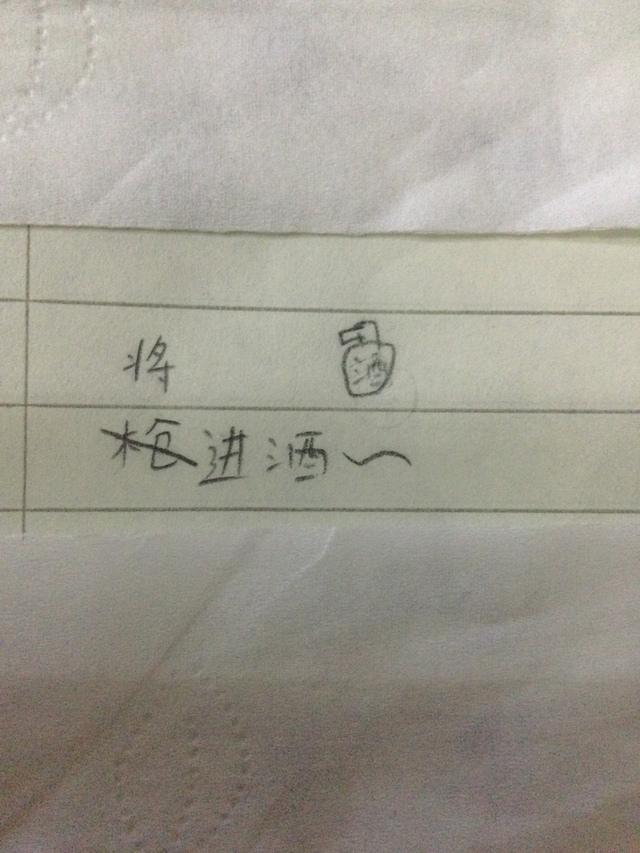 将 酒
枪进酒～